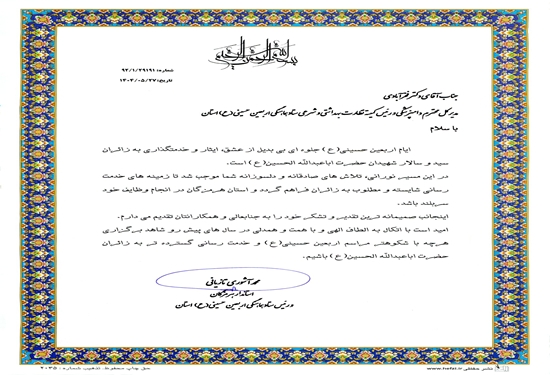 بسم الله الرحمن الرحیم
شماره: ۹۲/۱/۲۹۱۹۱
تاریخ: ۱۴۰۳/۰۵/۲۷
جناب آقای دکتر فقرآبادی
مدیر کل محترم دامپزشکی و رئیس کمیته نظارت بهداشتی و شرعی ستاد هماهنگی اربعین حسینی(ع) استان
با سلام
ایام اربعین حسینی(ع) جلوه ای بی بدیل از عشق، ایثار و خدمتگذاری به زائران
سید و سالار شهیدان حضرت اباعبدالله الحسین(ع) است.
در این مسیر نورانی، تلاش های صادقانه و دلسوزانه شما موجب شد تا زمینه های خدمت
رسانی شایسته و مطلوب به زائران فراهم گردد و استان هرمزگان در انجام وظایف خود
سربلند باشد.
اینجانب صمیمانه ترین تقدیر و تشکر خود را به جنابعالی و همکارانتان تقدیم می دارم.
امید است با اتکال به الطاف الهی و با همت و همدلی در سال های پیش رو شاهد برگزاری
هرچه با شکوهتر مراسم اربعین حسینی(ع) و خدمت رسانی گسترده تر به زائران
حضرت اباعبدالله الحسین(ع) باشیم.
محمد آشوری تازیانی
استاندار هرمزگان
و رئیس ستاد هماهنگی اربعین حسینی(ع) استان
نشر حفظی www.hefzi.ir
حق چاپ محفوظ، تذهیب شماره: ۲۰۳۵